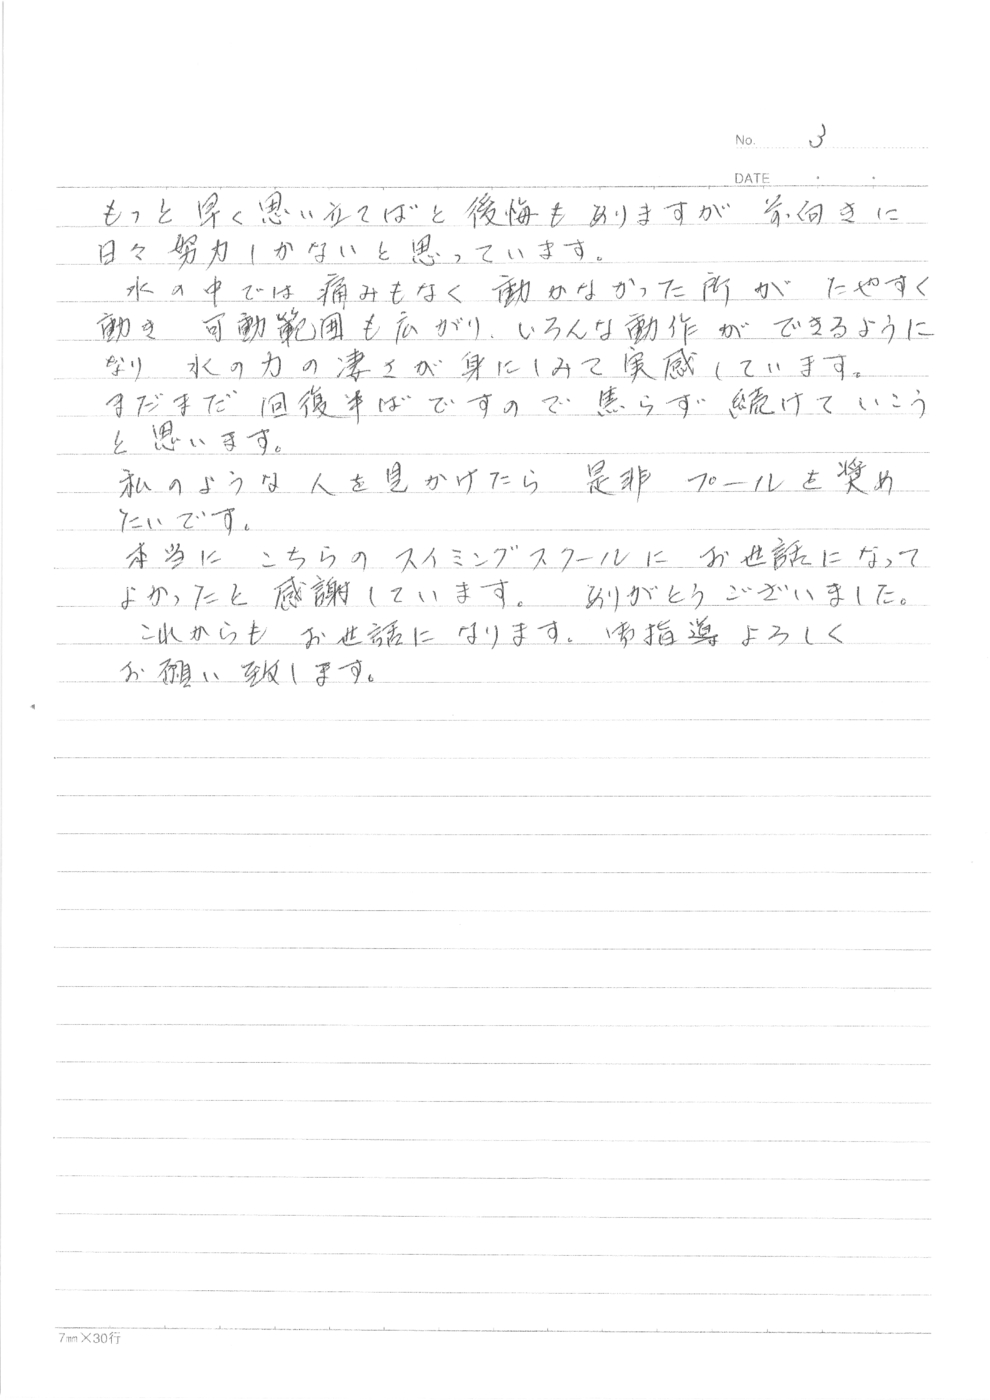 No. 3
DATE ・ ・
もっと早く思い立てばと後悔もありますが 前向きに
日々努力しかないと思っています。
水の中では痛みもなく 動かなかった所が たやすく
動き 可動範囲も広がり、いろんな動作ができるように
なり 水の力の凄さが身にしみて実感しています。
まだまだ回復半ばですので焦らず続けていこう
と思います。
私のような人を見かけたら 是非 プールを奨め
たいです。
本当に こちらのスイミングスクールに お世話になって
よかったと感謝しています。 ありがとうございました。
これからも お世話になります。御指導よろしく
お願い致します。
7mm×30行